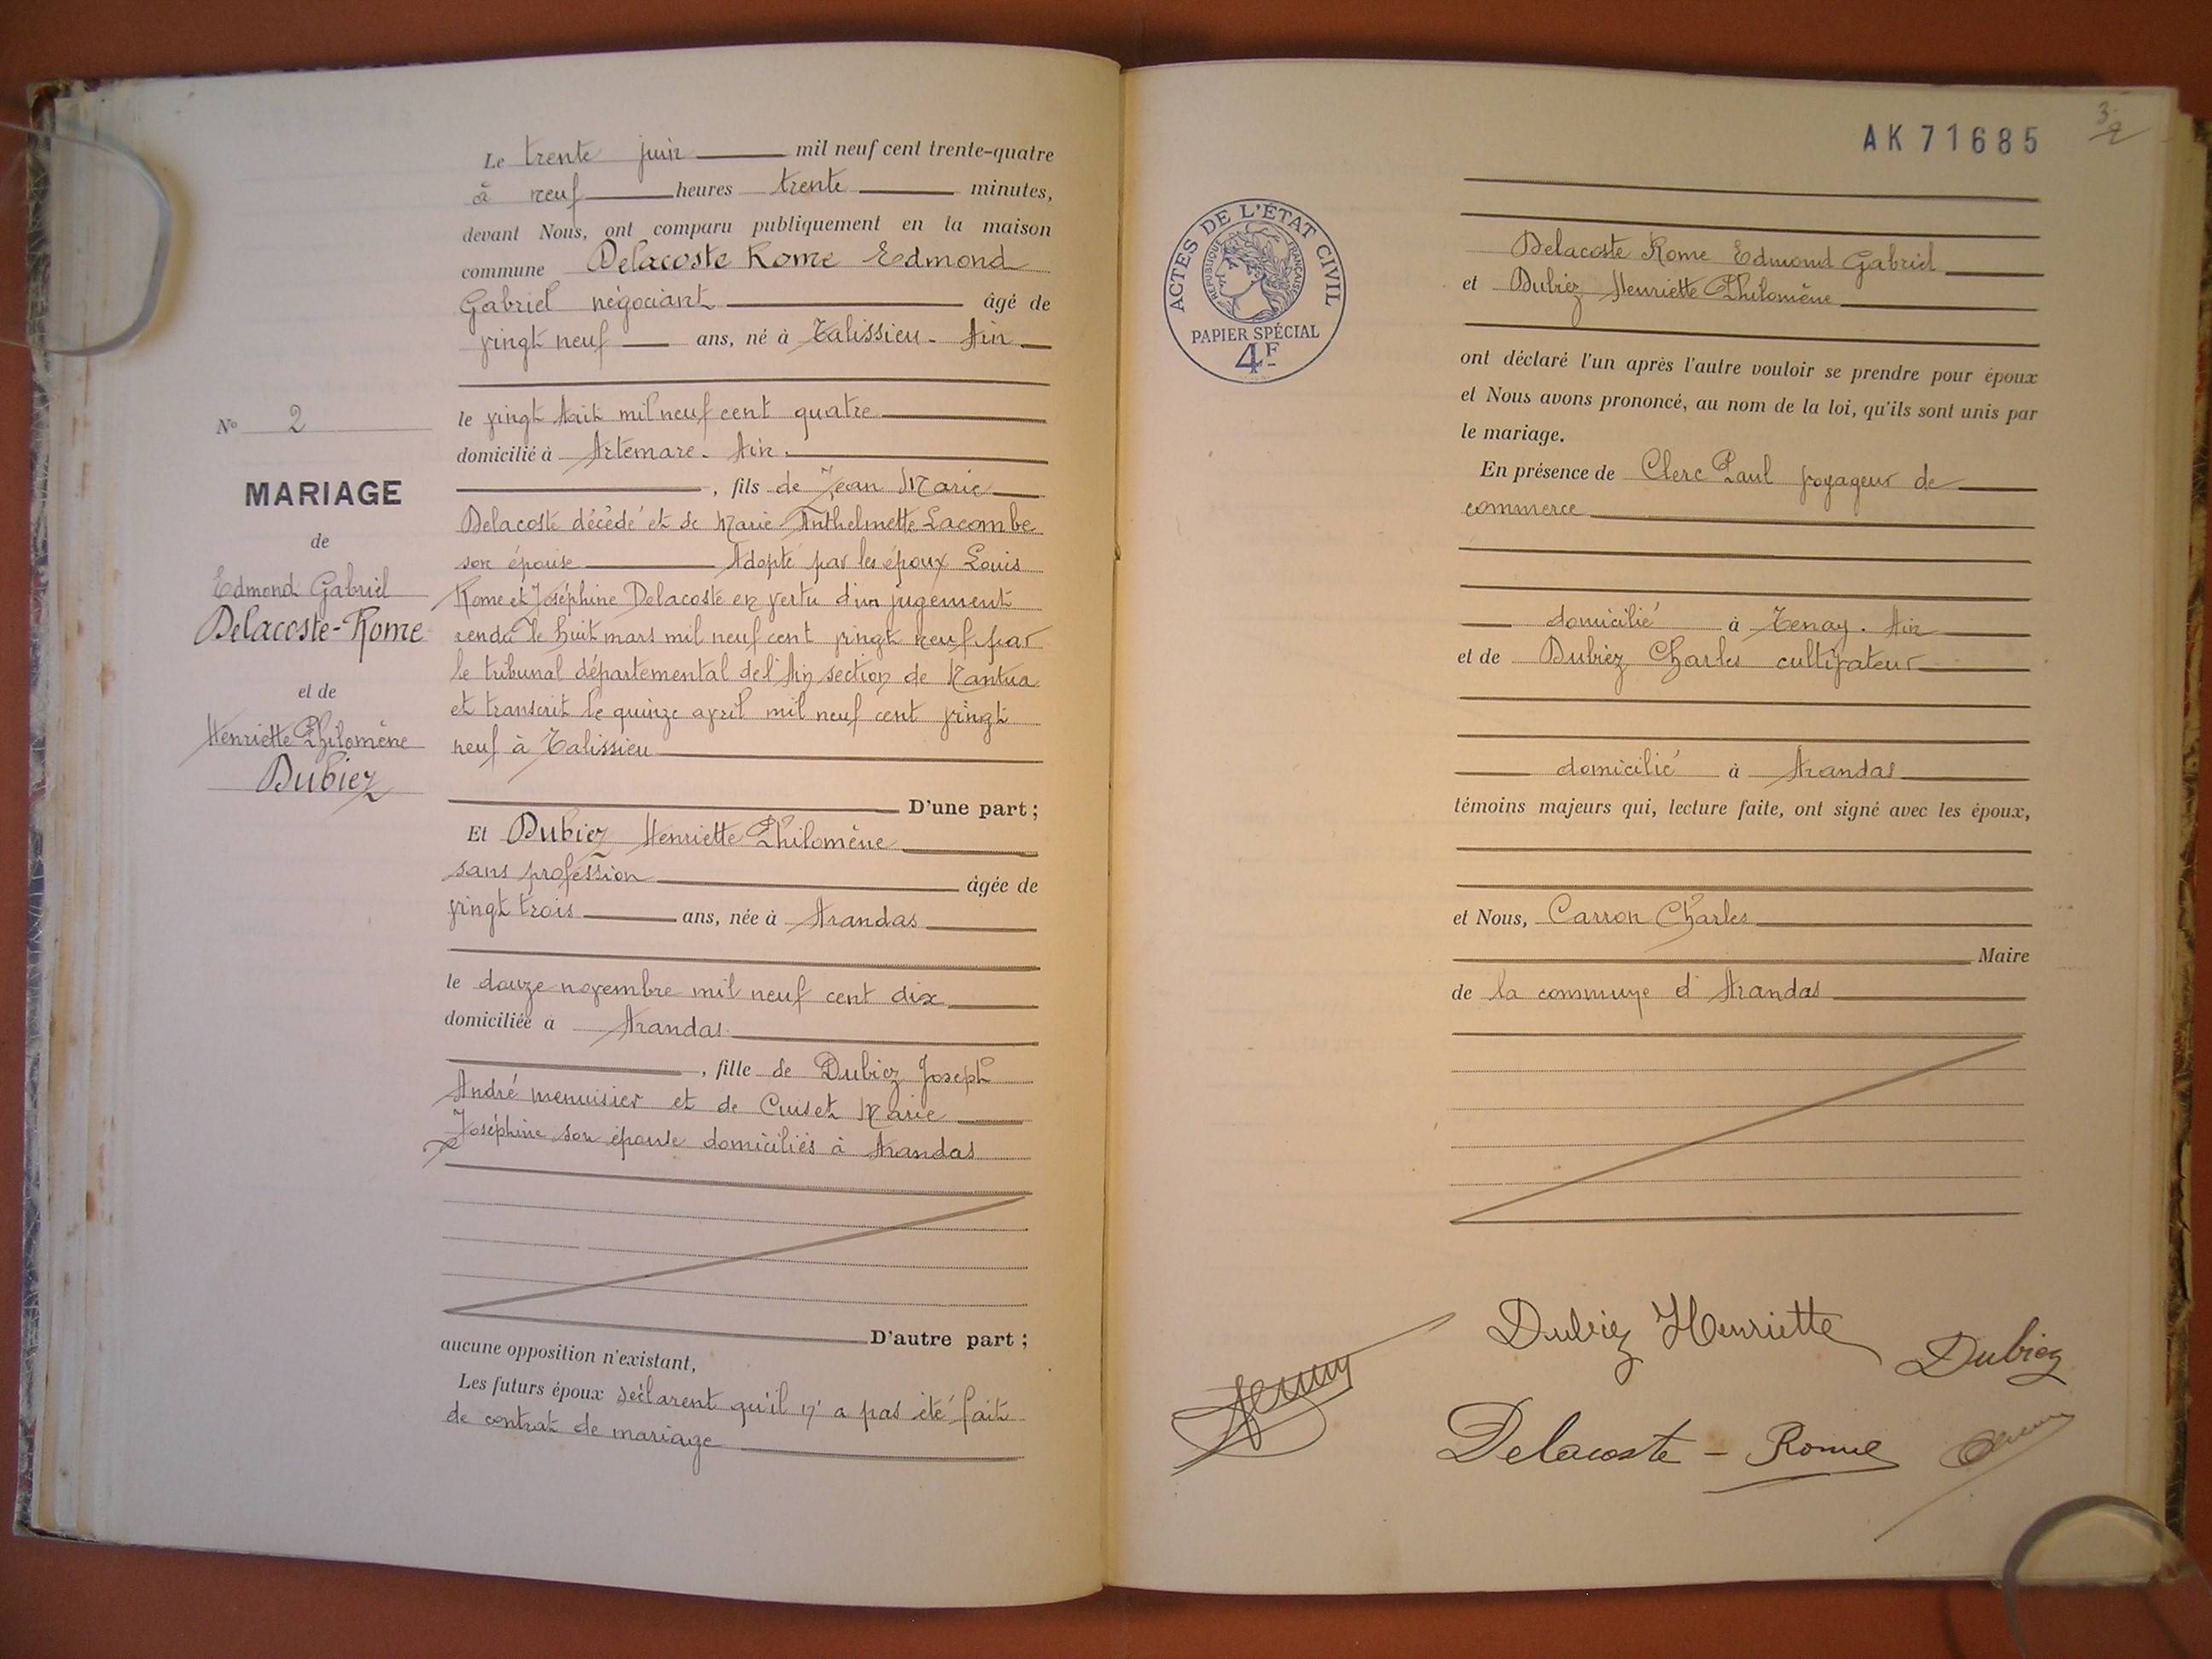 Le trente juin mil neuf cent trente-quatre
à neuf heures trente minutes,
devant Nous, ont comparu publiquement en la maison
commune Delacoste Rome Edmond
Gabriel négociant âgé de
vingt neuf ans, né à Talissieu - Ain
le vingt août mil neuf cent quatre
domicilié à Artemare - Ain
, fils de Jean Marie
Delacoste décédé et de Marie Anthelmette Lacombe
son épouse Adopté par les époux Louis
Rome et Joséphine Delacoste en vertu d'un jugement
rendu le huit mars mil neuf cent vingt neuf par
le tribunal départemental de l'Ain section de Nantua
et transcrit le quinze avril mil neuf cent vingt
neuf à Talissieu
D'une part ;
Et Dubiez Henriette Philomène
sans profession âgée de
vingt trois ans, née à Arandas
le douze novembre mil neuf cent dix
domiciliée à Arandas
, fille de Dubiez Joseph
André menuisier et de Cuiset Marie
Joséphine son épouse domiciliés à Arandas
D'autre part ;
aucune opposition n'existant,
Les futurs époux déclarent qu'il n'a pas été fait
de contrat de mariage
N° 2
MARIAGE
de
Edmond Gabriel
Delacoste-Rome
et de
Henriette Philomène
Dubiez
AK 71685
ACTES DE L'ÉTAT CIVIL
RÉPUBLIQUE FRANÇAISE
PAPIER SPÉCIAL
4F
Delacoste Rome Edmond Gabriel
et Dubiez Henriette Philomène
ont déclaré l'un après l'autre vouloir se prendre pour époux
et Nous avons prononcé, au nom de la loi, qu'ils sont unis par
le mariage.
En présence de Clerc Paul voyageur de
commerce
domicilié à Tenay. Ain
et de Dubiez Charles cultivateur
domicilié à Arandas
témoins majeurs qui, lecture faite, ont signé avec les époux,
et Nous, Carron Charles
Maire
de la commune d'Arandas
Dubiez Henriette
Dubiez
Delacoste - Rome